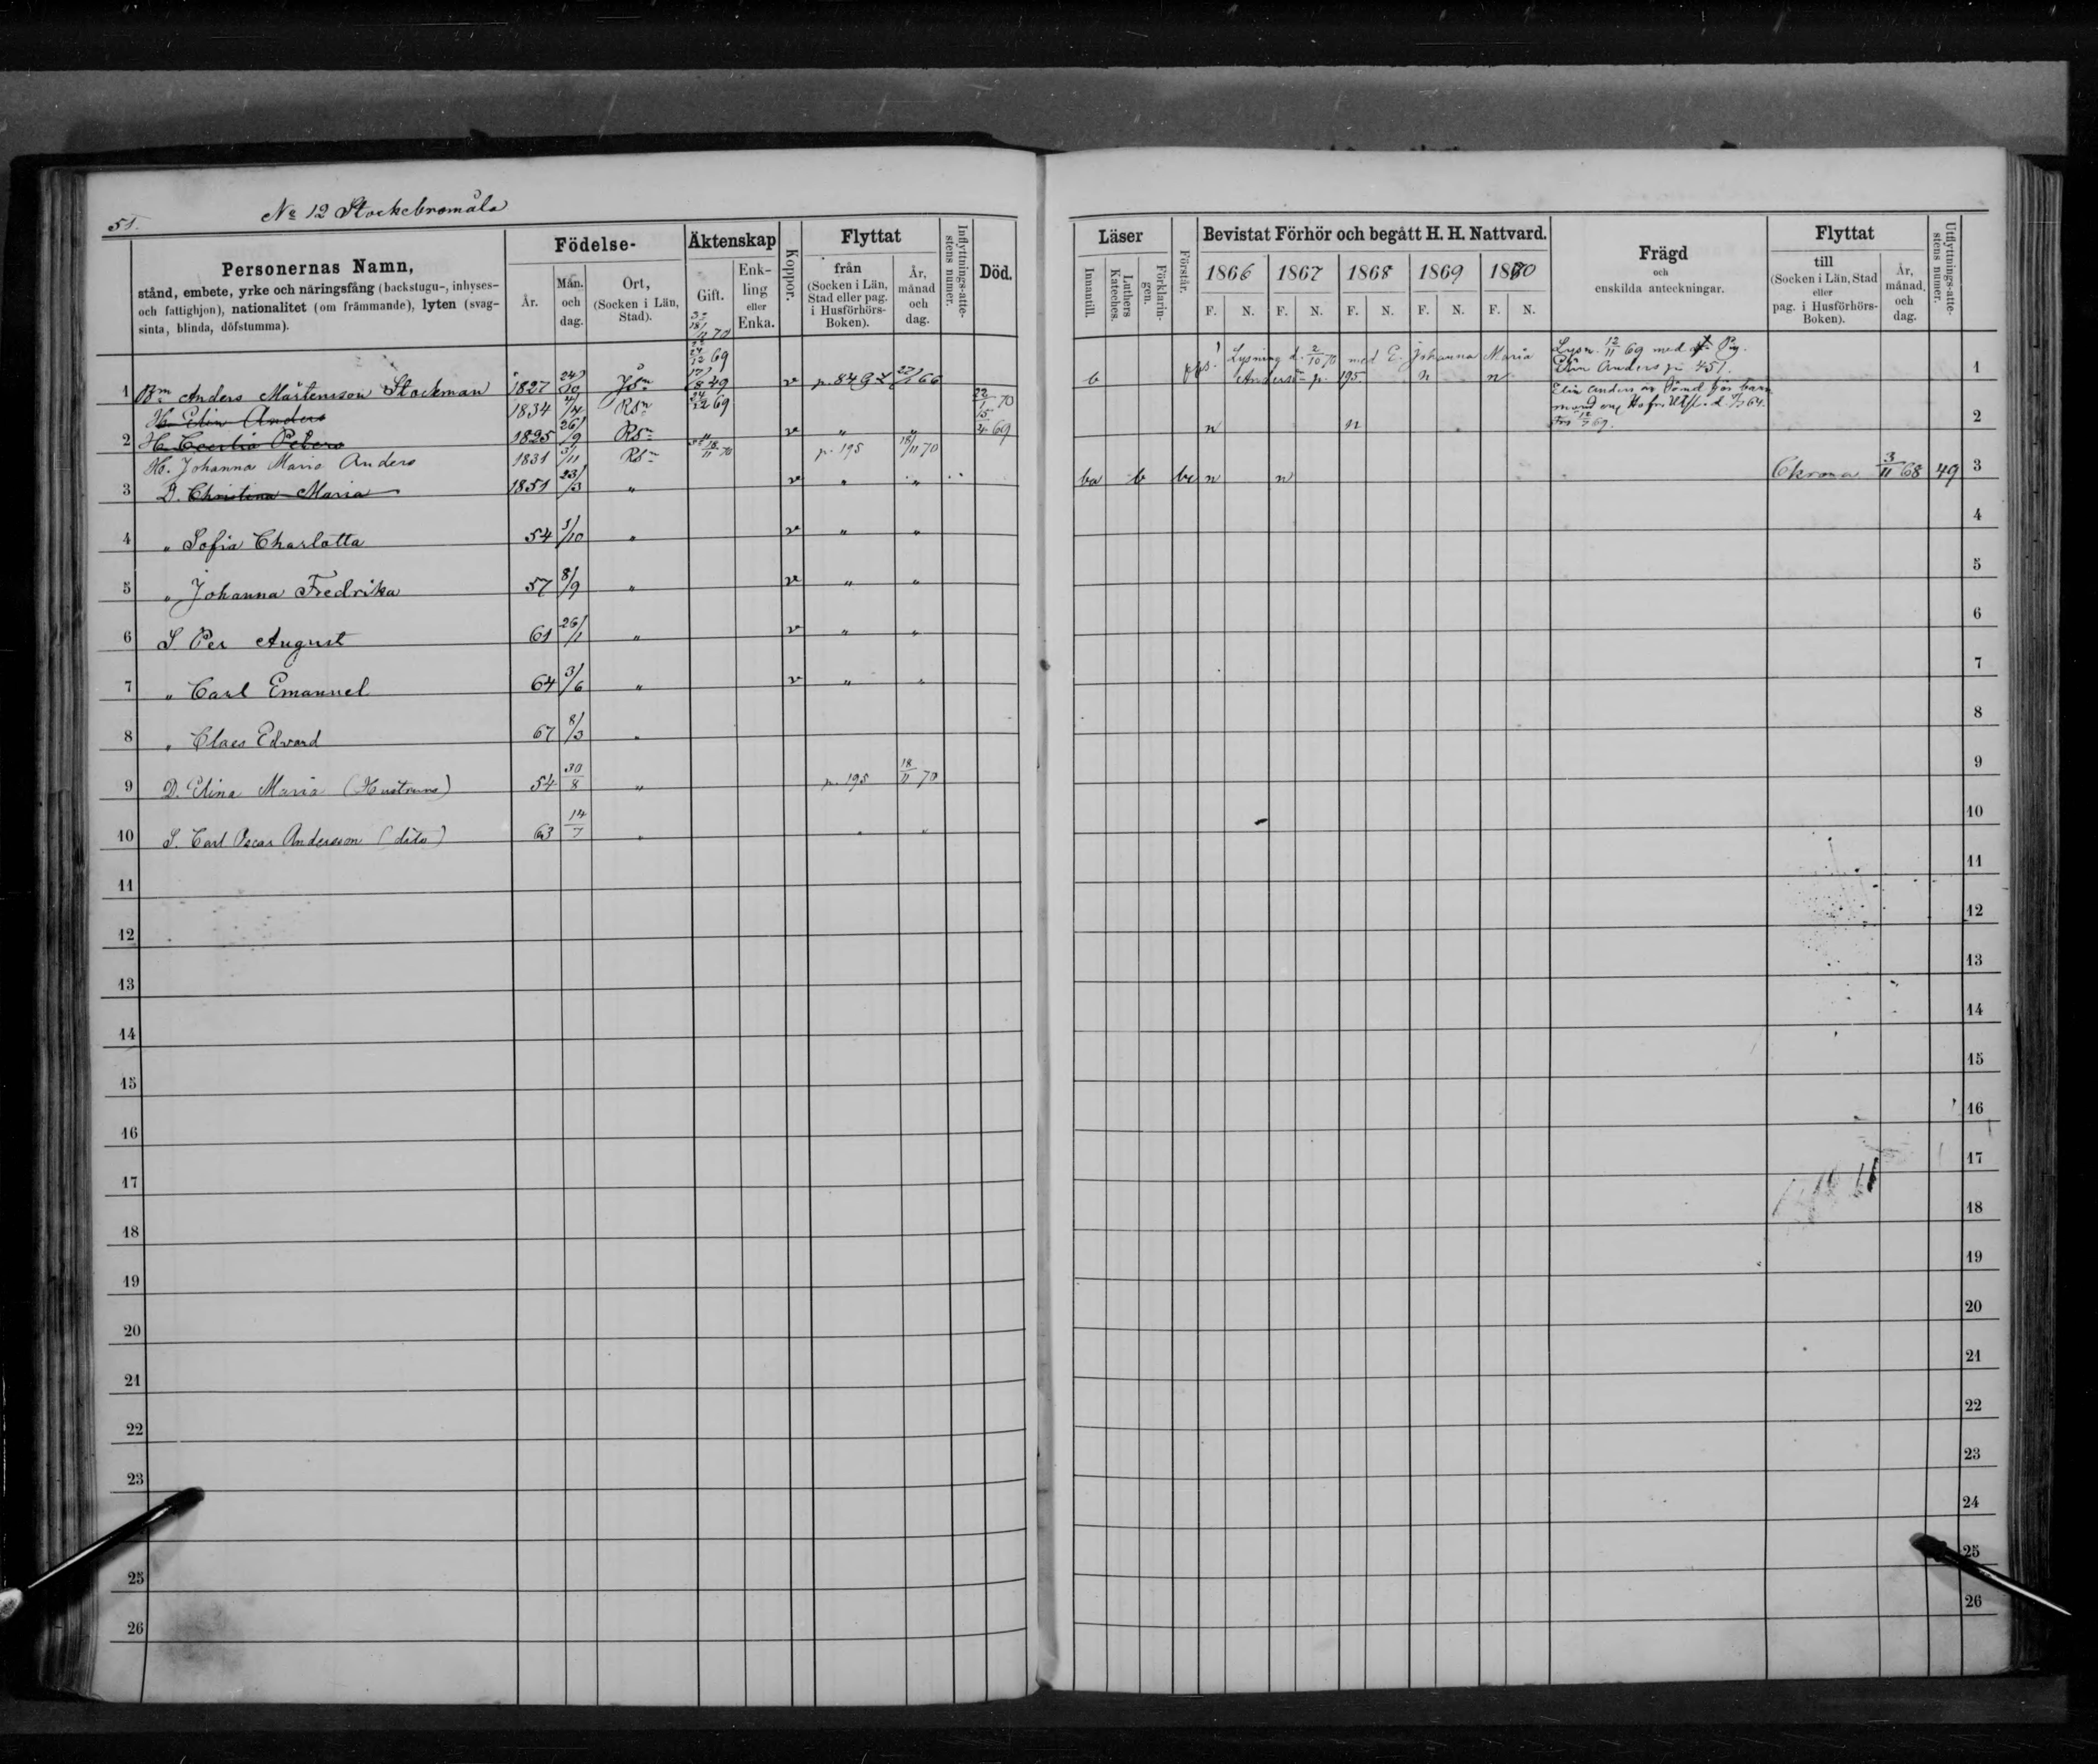 51.
No 12 Stockebromåla
Personernas Namn,
stånd, embete, yrke och näringsfång (backstugu-, inhyses-
och fattighjon), nationalitet (om främmande), lyten (svag-
sinta, blinda, döfstumma).
Födelse-
År.
Mån. och dag.
Ort, (Socken i Län, Stad).
Äktenskap
Gift.
Enk-
ling
eller
Enka.
Koppor.
Flyttat
från
(Socken i Län,
Stad eller pag.
i Husförhörs-
Boken).
År,
månad
och
dag.
Inflyttnings-atte-
stens numer.
Död.
Läser
Innantill.
Luthers Kateches.
Förklarin-
gen.
Förstår.
Bevistat Förhör och begått H. H. Nattvard.
1866 1867 1868 1869 1870
F. N. F. N. F. N. F. N. F. N.
Frägd
och
enskilda anteckningar.
Flyttat
till
(Socken i Län, Stad
eller
pag. i Husförhörs-
Boken).
År,
månad,
och
dag.
Utflyttnings-atte-
stens numer.
18/11 70
24/12 69
1 Bm Anders Mårtensson Stockman 1827 24/10 17/8 49 v p. 849 27/1 66 b n n 1
Lysning d. 2/10 70 med E. Johanna Maria
Andersdn p. 195.
Lysn. 12/11 69 med Pig.
Elin Anders p. 451.
H. Elin Anders 1834 4/4 RSn 24/12 69 22/1 70
2 H. Cecilia Peters 1825 26/9 RSn v " " 15/4 69 n n 2
H. Johanna Maria Anders 1831 3/11 RSn 18/11 70 p. 195 18/11 70
3 D. Christina Maria 1851 23/3 " v " " ba b bc n n Ckrona 3/11 68 49 3
4 " Sofia Charlotta 54 3/10 " v " " 4
5 " Johanna Fredrika 57 8/9 " v " " 5
6 S Per August 61 26/1 " v " " 6
7 " Carl Emanuel 64 3/6 " v " " 7
8 " Claes Edvard 67 8/3 " 8
9 D. Elina Maria (Hustruns) 54 30/8 " p. 195 18/11 70 9
10 S. Carl Oscar Andersson (dito) 63 14/7 " " " 10
11 11
12 12
13 13
14 14
15 15
16 16
17 17
18 18
19 19
20 20
21 21
22 22
23 23
24
25 25
26 26